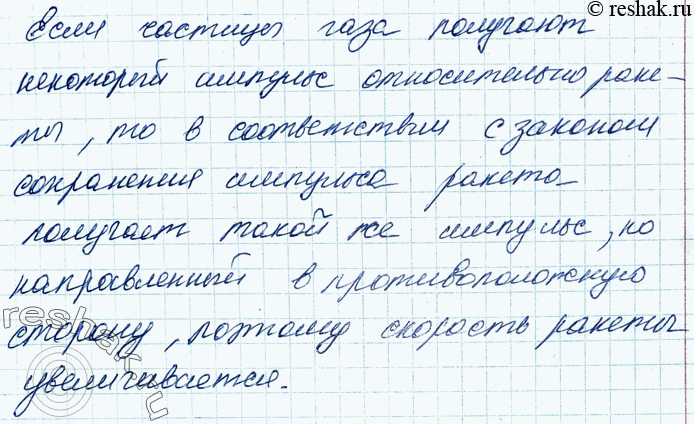 © reshak.ru
Если частицы газа получают
некоторый импульс относительно раке-
ты, то в соответствии с законом
сохранения импульса ракета
получает такой же импульс, но
направленный в противоположную
сторону, поэтому скорость ракеты
увеличивается.
reshak.ru